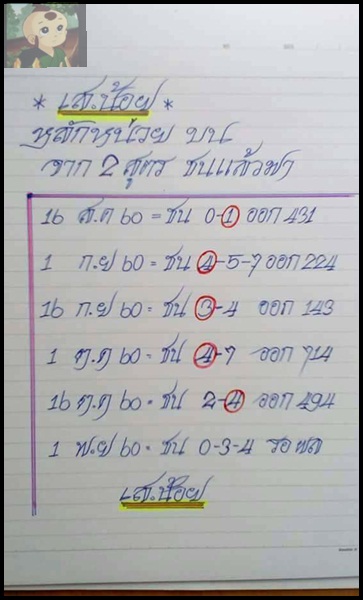 * เส.น้อย *
หลักหน่วย บน
จาก 2 สูตร ชนแล้วพา
16 ส.ค 60 = ชน 0-1 ออก 431
1 ก.ย 60 = ชน 4-5-7 ออก 224
16 ก.ย 60 = ชน 3-4 ออก 143
1 ต.ค 60 = ชน 4-7 ออก 714
16 ต.ค 60 = ชน 2-4 ออก 494
1 พ.ย 60 = ชน 0-3-4 รอ ผล
เส.น้อย